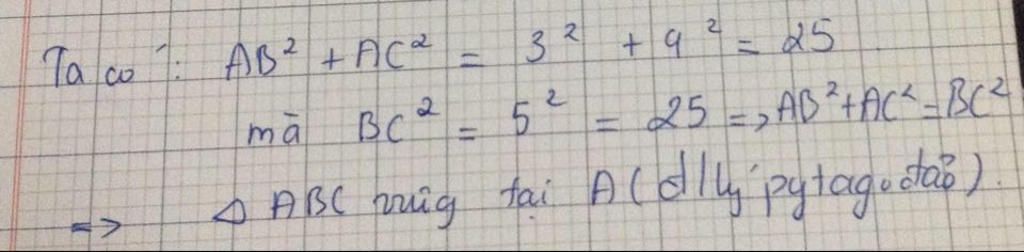 Ta có : AB² + AC² = 3² + 4² = 25
mà BC² = 5² = 25 => AB² + AC² = BC²
=> △ ABC vuông tại A (đ/lý pytago đảo).